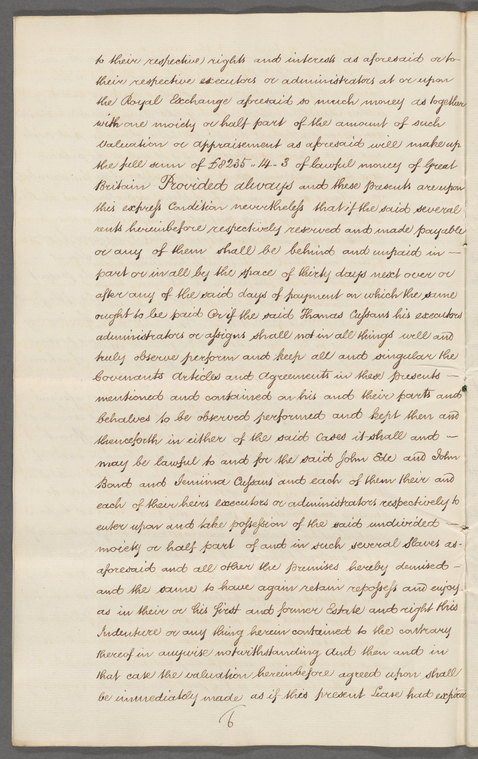 to their respective rights and interests as aforesaid or to
their respective executors or administrators at or upon
the Royal Exchange aforesaid so much money as together
with one moiety or half part of the amount of such
Valuation or appraisement as aforesaid will make up
the full sum of £8235-14-3 of lawful money of Great
Britain Provided always and these Presents are upon
this express Condition nevertheless that if the said several
rents hereinbefore respectively reserved and made payable
or any of them shall be behind and unpaid in —
part or in all by the space of thirty days next over or
after any of the said days of payment on which the same
ought to be paid Or if the said Thomas Cussans his executors
administrators or assigns shall not in all things well and
truly observe perform and keep all and singular the
Covenants Articles and Agreements in these presents —
mentioned and contained on his and their parts and
behalves to be observed performed and kept then and
thenceforth in either of the said Cases it shall and —
may be lawful to and for the said John Ede and John
Bond and Jemima Cussans and each of them their and
each of their heirs executors or administrators respectively to
enter upon and take possession of the said undivided —
moiety or half part of and in such several Slaves as
aforesaid and all other the Premises hereby demised —
and the same to have again retain repossess and enjoy
as in their or his first and former Estate and right this
Indenture or any thing herein contained to the contrary
thereof in anywise notwithstanding And then and in
that case the valuation hereinbefore agreed upon shall
be immediately made as if this present Lease had expired
6